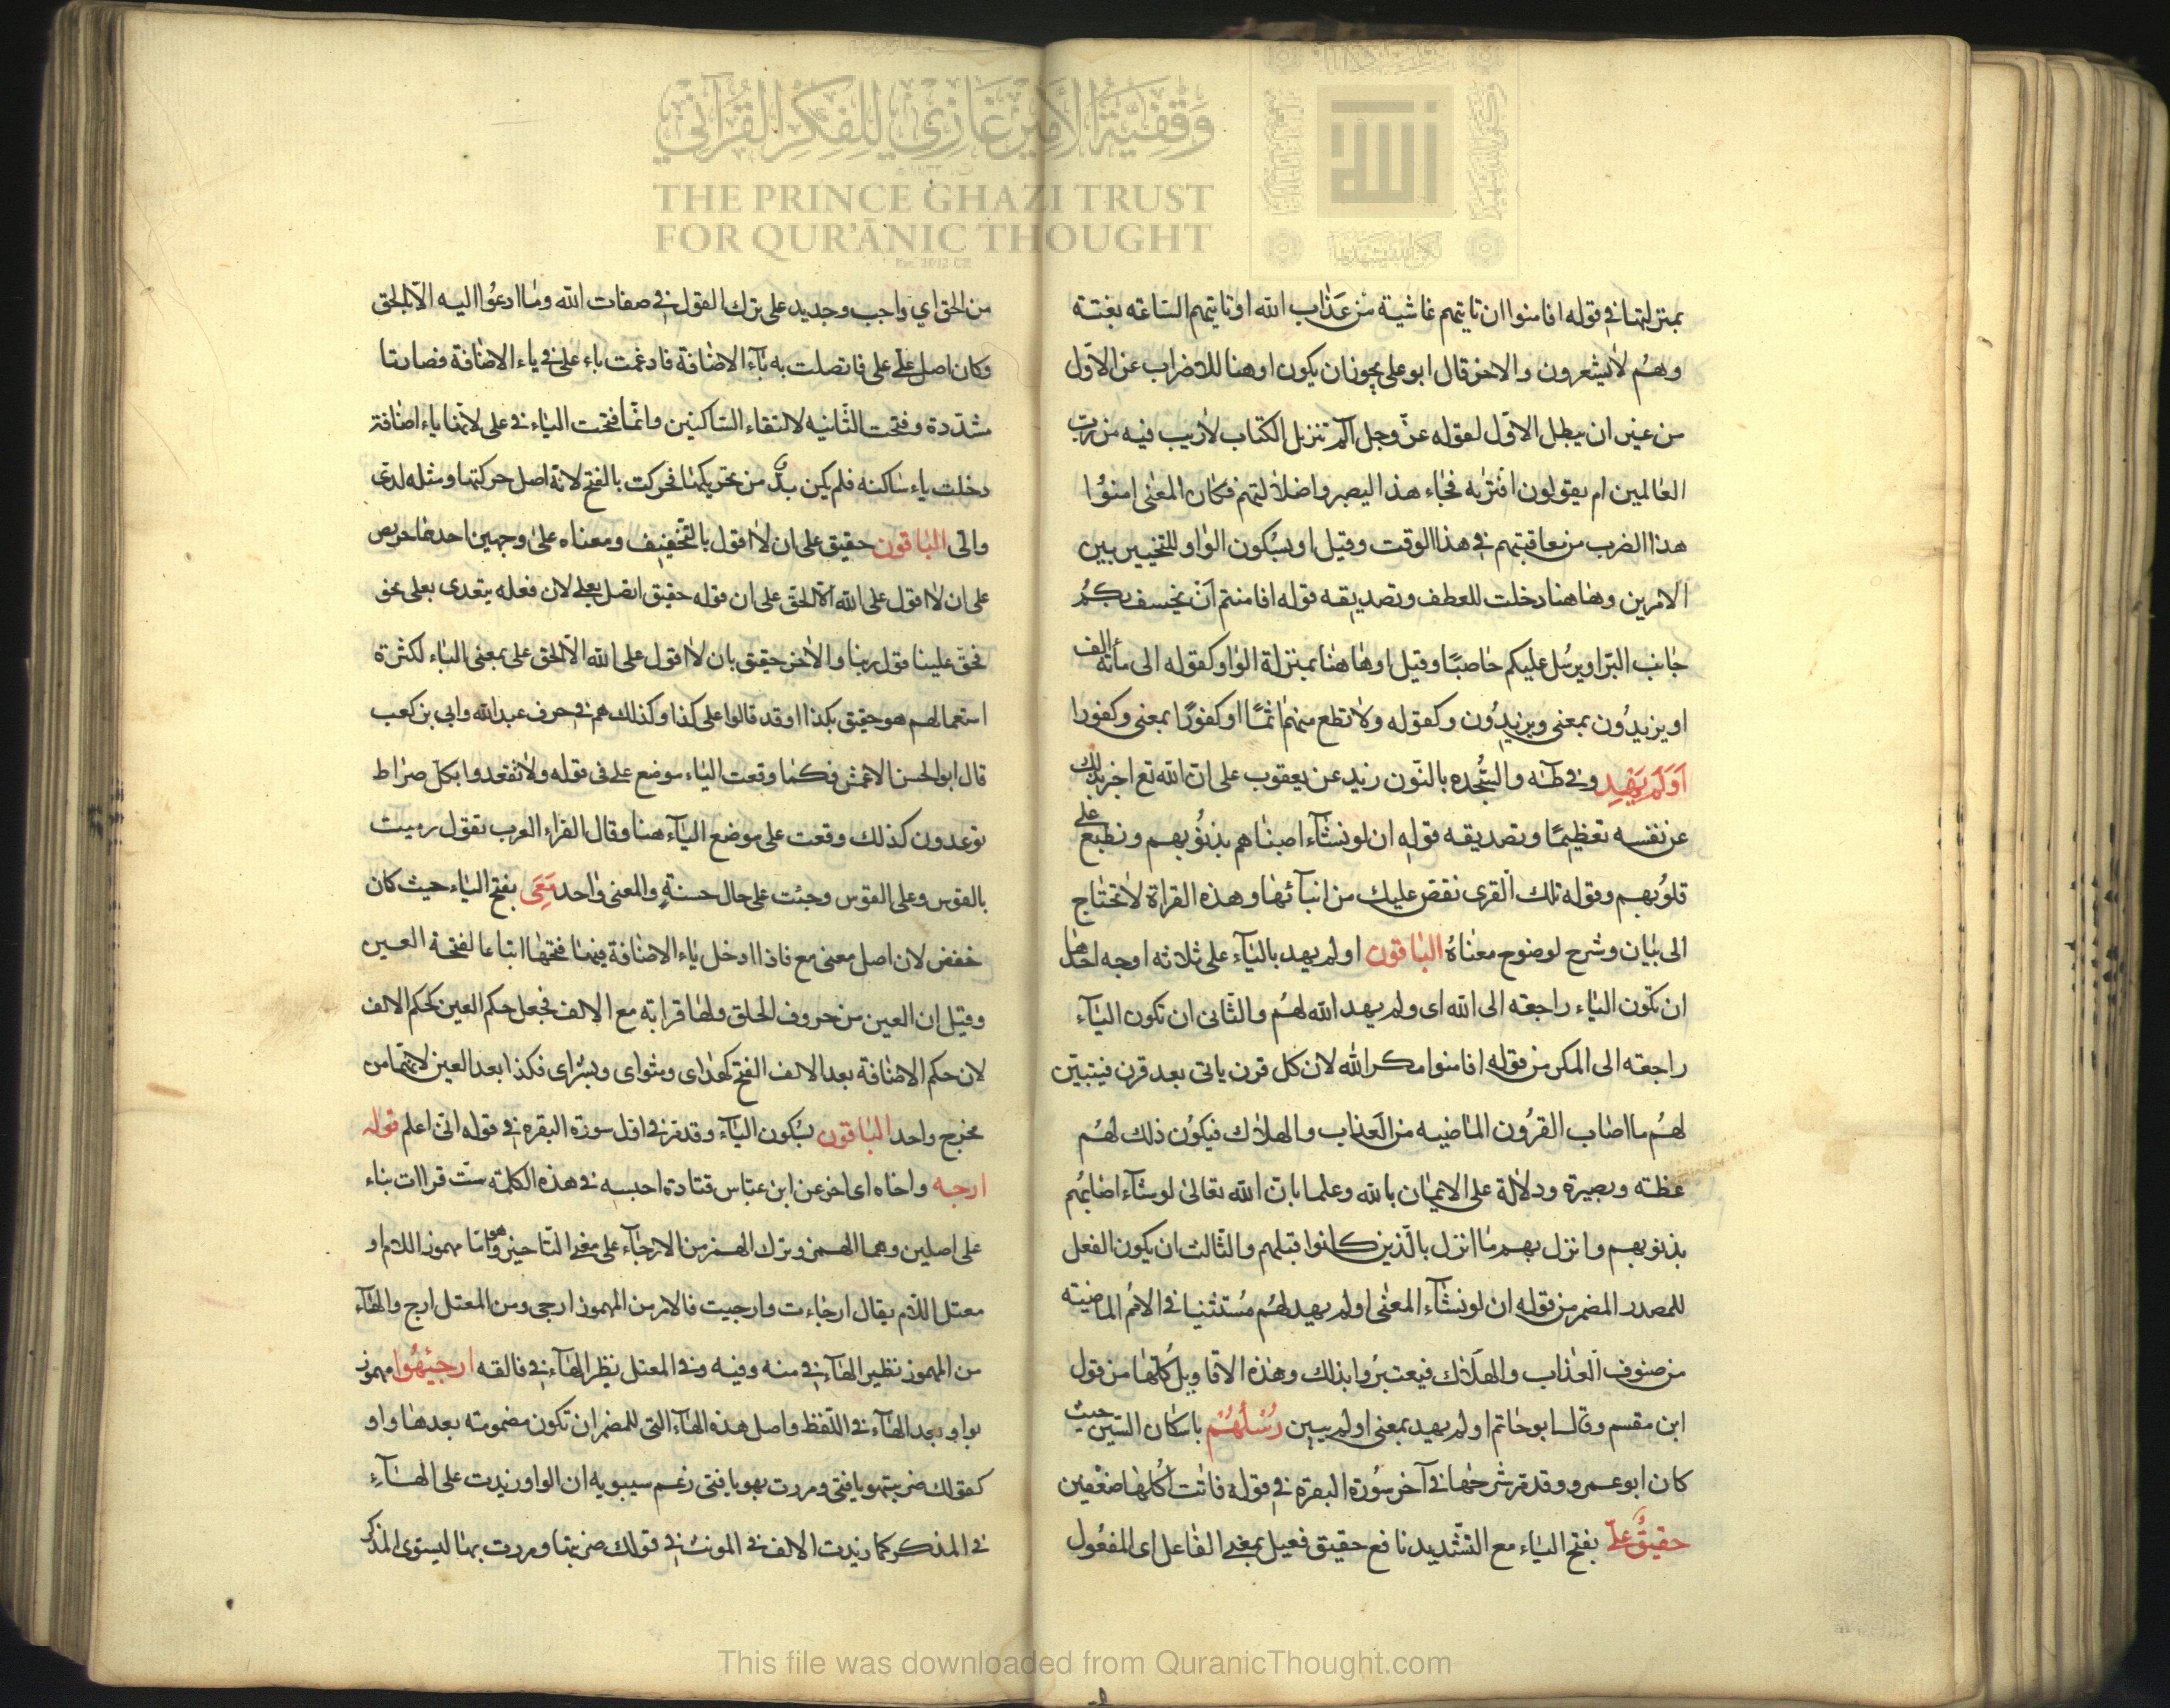 وقفية الأمير غازي للفكر القرآني
THE PRINCE GHAZI TRUST
FOR QUR'ĀNIC THOUGHT
الله
بمنزلتها في قوله افامنوا ان تاتيهم غاشية من عذاب الله او تاتيهم الساعه بغتة
وهم لا يشعرون والاخر قال ابو على يجوز ان يكون او هنا للاضراب عن الاول
من غير ان يبطل الاول لقوله عز وجل الم تنزيل الكتاب لا ريب فيه من رب
العالمين ام يقولون افتريه فجاء هذا ليبصروا ضلالتهم فكان المعنى امنوا
هذا الضرب من معاقبتهم في هذا الوقت وقيل او بسكون الواو للتخيير بين
الامرين وهاهنا دخلت للعطف وتصديقه قوله افامنتم ان نخسف بكم
جانب البر او يرسل عليكم حاصبا وقيل او هاهنا بمنزلة الواو كقوله الى مائة الف
او يزيدون بمعنى ويزيدون وكقوله ولا تطع منهم اثما او كفورا بمعنى وكفورا
اولم يهد وفي طه والسجده بالنون زيد عن يعقوب على ان الله تع اخبر بذلك
عن نفسه تعظيما وتصديقه قوله ان لو نشاء اصبناهم بذنوبهم ونطبع على
قلوبهم وقوله تلك القرى نقض عليك من انبائها وهذه القراة لا تحتاج
الى بيان وشرح لوضوح معناه الباقون اولم يهد بالياء على ثلاثه اوجه احدها
ان تكون الياء راجعه الى الله اى ولم يهد الله لهم والثانى ان تكون الياء
راجعه الى المكر من قوله افامنوا مكر الله لان كل قرن ياتى بعد قرن فيتبين
لهم ما اصاب القرون الماضيه من العذاب والهلاك فيكون ذلك لهم
عظته وبصيرة ودلالة على الايمان بالله وعلما بان الله تعالى لو شاء اصابهم
بذنوبهم وانزل بهم ما انزل بالذين كانوا قبلهم والثالث ان يكون الفعل
للمصدر المضمر من قوله ان لو نشاء المعنى اولم يهد لهم مشيئتنا في الامم الماضية
من صنوف العذاب والهلاك فيعتبروا بذلك وهذه الاقاويل كلها من قول
ابن مقسم وقال ابو حاتم اولم يهد بمعنى اولم يبين رسلهم باسكان السين حيث
كان ابو عمرو وقد مر شرحها في آخر سورة البقرة في قوله فاتت اكلها ضعفين
حقيق علىّ بفتح الياء مع التشديد نافع حقيق فعيل بمعنى الفاعل اى المفعول
من الحق اي واجب وجديد على ترك القول في صفات الله وما ادعوا اليه الا بالحق
وكان اصل علىّ على فاتصلت به ياء الاضافة فادغمت ياء على في ياء الاضافة فصارتا
مشددة وفتحت الثانيه لالتقاء الساكنين وانما فتحت الياء في على لانها ياء اضافة
دخلت ياء ساكنه فلم يكن بد من تحريكها فحركت بالفتح لانه اصل حركتها ومثله لدى
والى الباقون حقيق على ان لا اقول بالتخفيف ومعناه على وجهين احدهما حريص
على ان لا اقول على الله الا الحق على ان قوله حقيق اتصل بعلى لان فعله يتعدى بعلى نحو
فحق علينا قول ربنا والاخر حقيق بان لا اقول على الله الا الحق على بمعنى الباء لكثرة
استعمالهم هو حقيق بكذا وقد قالوا على كذا وكذلك هم في حرف عبد الله وابى بن كعب
قال ابو الحسن الاخفش فكما وقعت الباء موضع على فى قوله ولا تقعدوا بكل صراط
توعدون كذلك وقعت على موضع الباء هنا وقال الفراء العرب تقول رميت
بالقوس وعلى القوس وجئت على حال حسنة والمعنى واحد معى بفتح الياء حيث كان
حفص لان اصل معى مع فاذا ادخل ياء الاضافة فيها فتحها اتباعا لفتحة العين
وقيل ان العين من حروف الحلق ولها قرابة مع الالف فجعل حكم العين كحكم الالف
لان حكم الاضافة بعد الالف الفتح كهداى ومثواى وبشراى فكذا بعد العين لانهما من
مخرج واحد الباقون بسكون الياء وقد مر في اول سورة البقره في قوله انى اعلم قوله
ارجه واخاه اى اخر عن ابن عباس قتادة احبسه في هذه الكلمة ست قراات بناء
على اصلين وهما الهمز وترك الهمز من الارجاء على معنى التاخير وهو اما مهموز اللام او
معتل اللام يقال ارجاءت وارجيت فالامر من المهموز ارجى ومن المعتل ارج والهاء
من المهموز نظير الهاء في منه وفيه وفي المعتل نظير الهاء في فالقه ارجئهوا مهموز
بواو بعد الهاء في اللفظ واصل هذه الهاء التى للمضمر ان تكون مضمومة بعدها واو
كقولك ضربتهو يا فتى ومررت بهو يا فتى زعم سيبويه ان الواو زيدت على الهاء
في المذكر كما زيدت الالف في المونث في قولك ضربتها ومررت بها ليستوى المذكر
This file was downloaded from QuranicThought.com